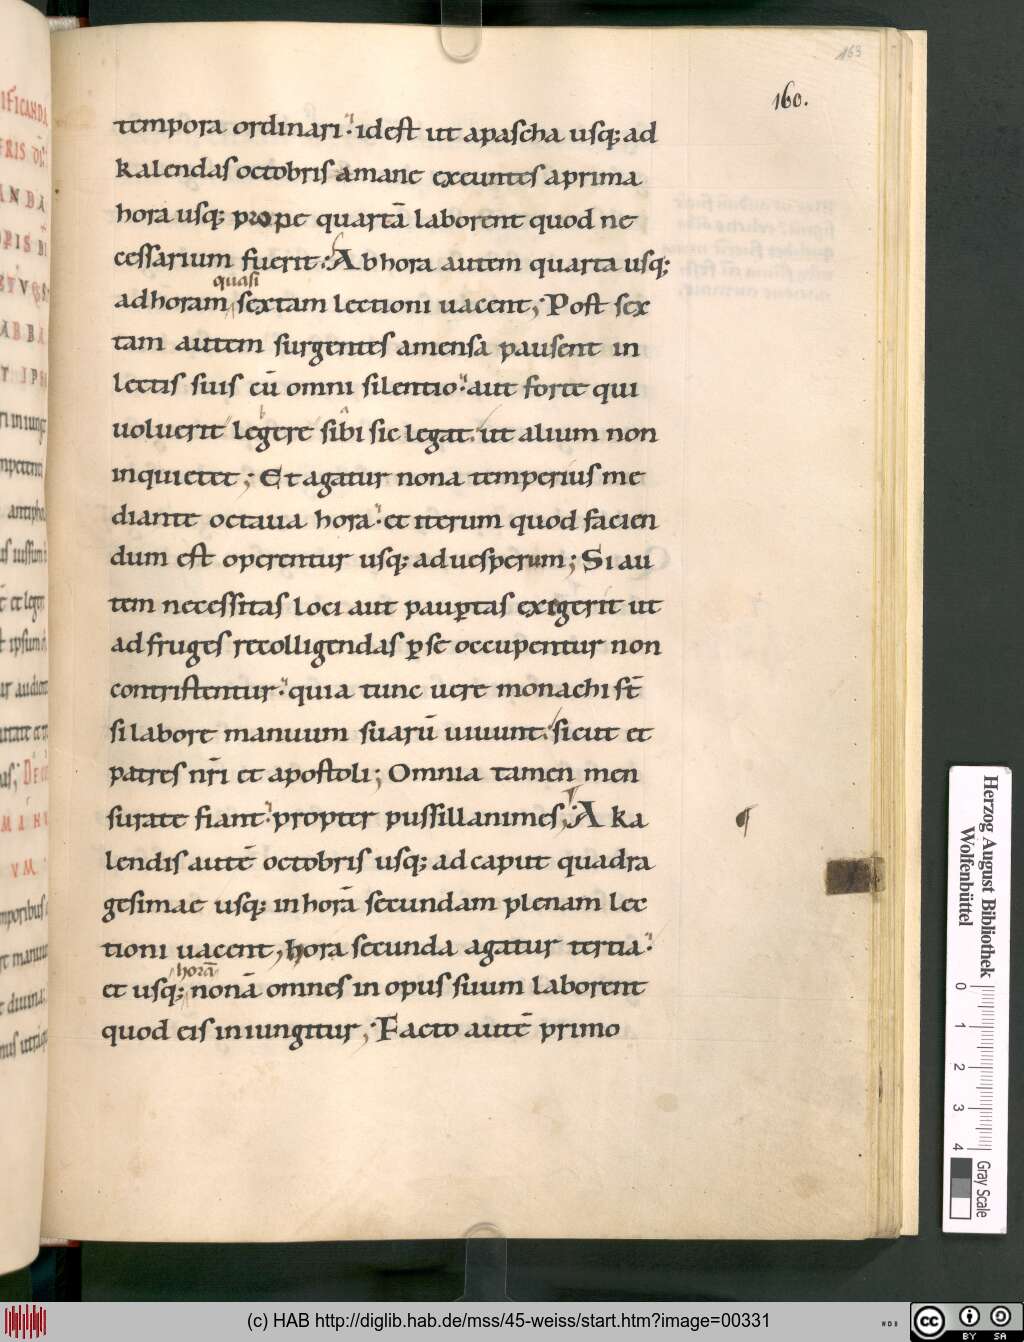 163
160.
tempora ordinari. idest ut apascha usq; ad
kalendas octobris amane exeuntes aprima
hora usq; prope quartā laborent quod ne
cessarium fuerit. Abhora autem quarta usq;
quasi
adhoram sextam lectioni uacent; Post sex
tam autem surgentes amensa pausent in
lectis suis cū omni silentio. aut forte qui
uoluerit legere sibi sic legat. ut alium non
inquietet; Et agatur nona temperius me
diante octaua hora. et iterum quod facien
dum est operentur usq; aduesperum; Si au
tem necessitas loci aut paup̱tas exigerit ut
adfruges recolligendas p̱se occupentur non
contristentur. quia tunc uere monachi st̄
silabore manuum suarū uiuunt. sicut et
patres nr̄i et apostoli; Omnia tamen men
surate fiant. propter pussillanimes; A ka
lendis autē octobris usq; ad caput quadra
gesimae usq; inhorā secundam plenam lec
tioni uacent, hora secunda agatur tertia.
horā
et usq; nonā omnes in opus suum laborent
quod eis iniungitur; Facto autē primo
Herzog August Bibliothek
Wolfenbüttel
0 1 2 3 4
Gray Scale
(c) HAB http://diglib.hab.de/mss/45-weiss/start.htm?image=00331
cc BY SA